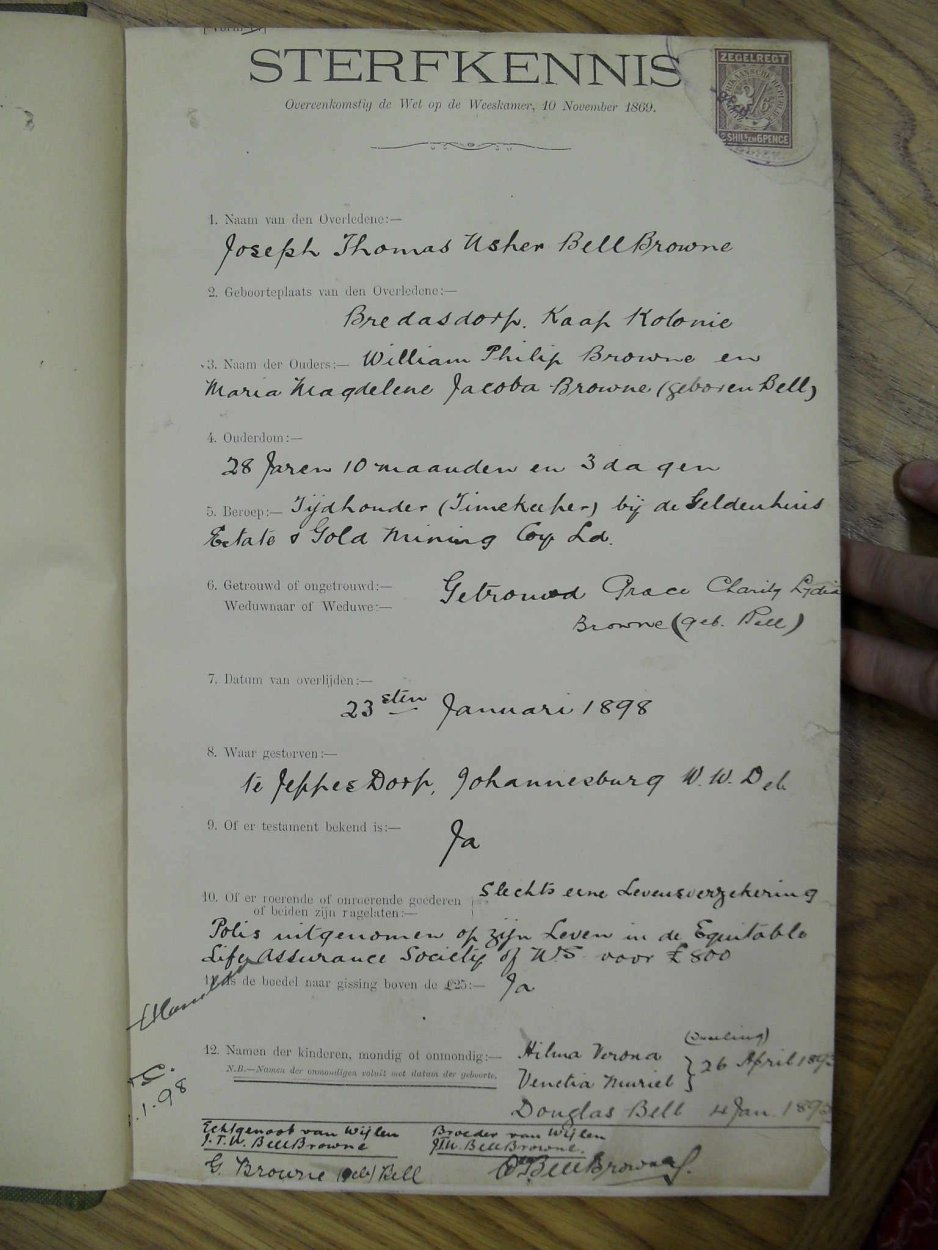 STERFKENNIS
Overeenkomstig de Wet op de Weeskamer, 10 November 1869.
ZEGELREGT
2 SHILs EN 6 PENCE
1. Naam van den Overledene:—
Joseph Thomas Usher Bell Browne
2. Geboorteplaats van den Overledene:—
Bredasdorp. Kaap Kolonie
3. Naam der Ouders:— William Philip Browne en
Maria Magdelene Jacoba Browne (geboren Bell)
4. Ouderdom:—
28 Jaren 10 maanden en 3 dagen
5. Beroep:— Tijdhouder (Timekeeper) bij de Geldenhuis
Estate & Gold Mining Coy Ld.
6. Getrouwd of ongetrouwd:— Getrouwd Grace Charity Lydia
Weduwnaar of Weduwe:— Browne (geb. Bell)
7. Datum van overlijden:—
23sten Januari 1898
8. Waar gestorven:—
te Jeppes Dorp, Johannesburg W. W.
9. Of er testament bekend is:— Ja
10. Of er roerende of onroerende goederen Slechts eene Levensverzekering
of beiden zijn nagelaten:—
Polis uitgenomen op zijn Leven in de Equitable
Life Assurance Society of US voor £800
11. Is de boedel naar gissing boven de £25:— Ja
12. Namen der kinderen, mondig of onmondig:— Hilma Verona
N.B.—Namen der onmondigen voluit met datum der geboorte. Venetia Muriel } 26 April
Douglas Bell 4 Jan
.1.98
Echtgenoot van Wijlen
J.T.U. Bell Browne
G. Browne (geb) Bell
Broeder van Wijlen
JTU. Bell Browne.
Bell Browne